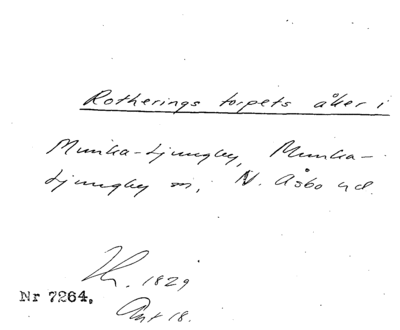 Rotherings torpets åker i
Munka-Ljungby, Munka-
Ljungby sn, N. Åsbo hd.
1829
Nr 7264.
Ant 18.